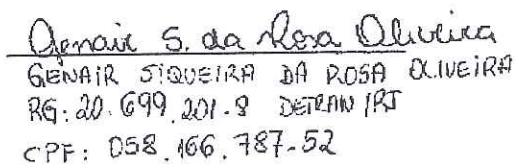 Genair S. da Rosa Oliveira
GENAIR SIQUEIRA DA ROSA OLIVEIRA
RG: 20.699.201-8 DETRAN/RJ
CPF: 058.166.787-52